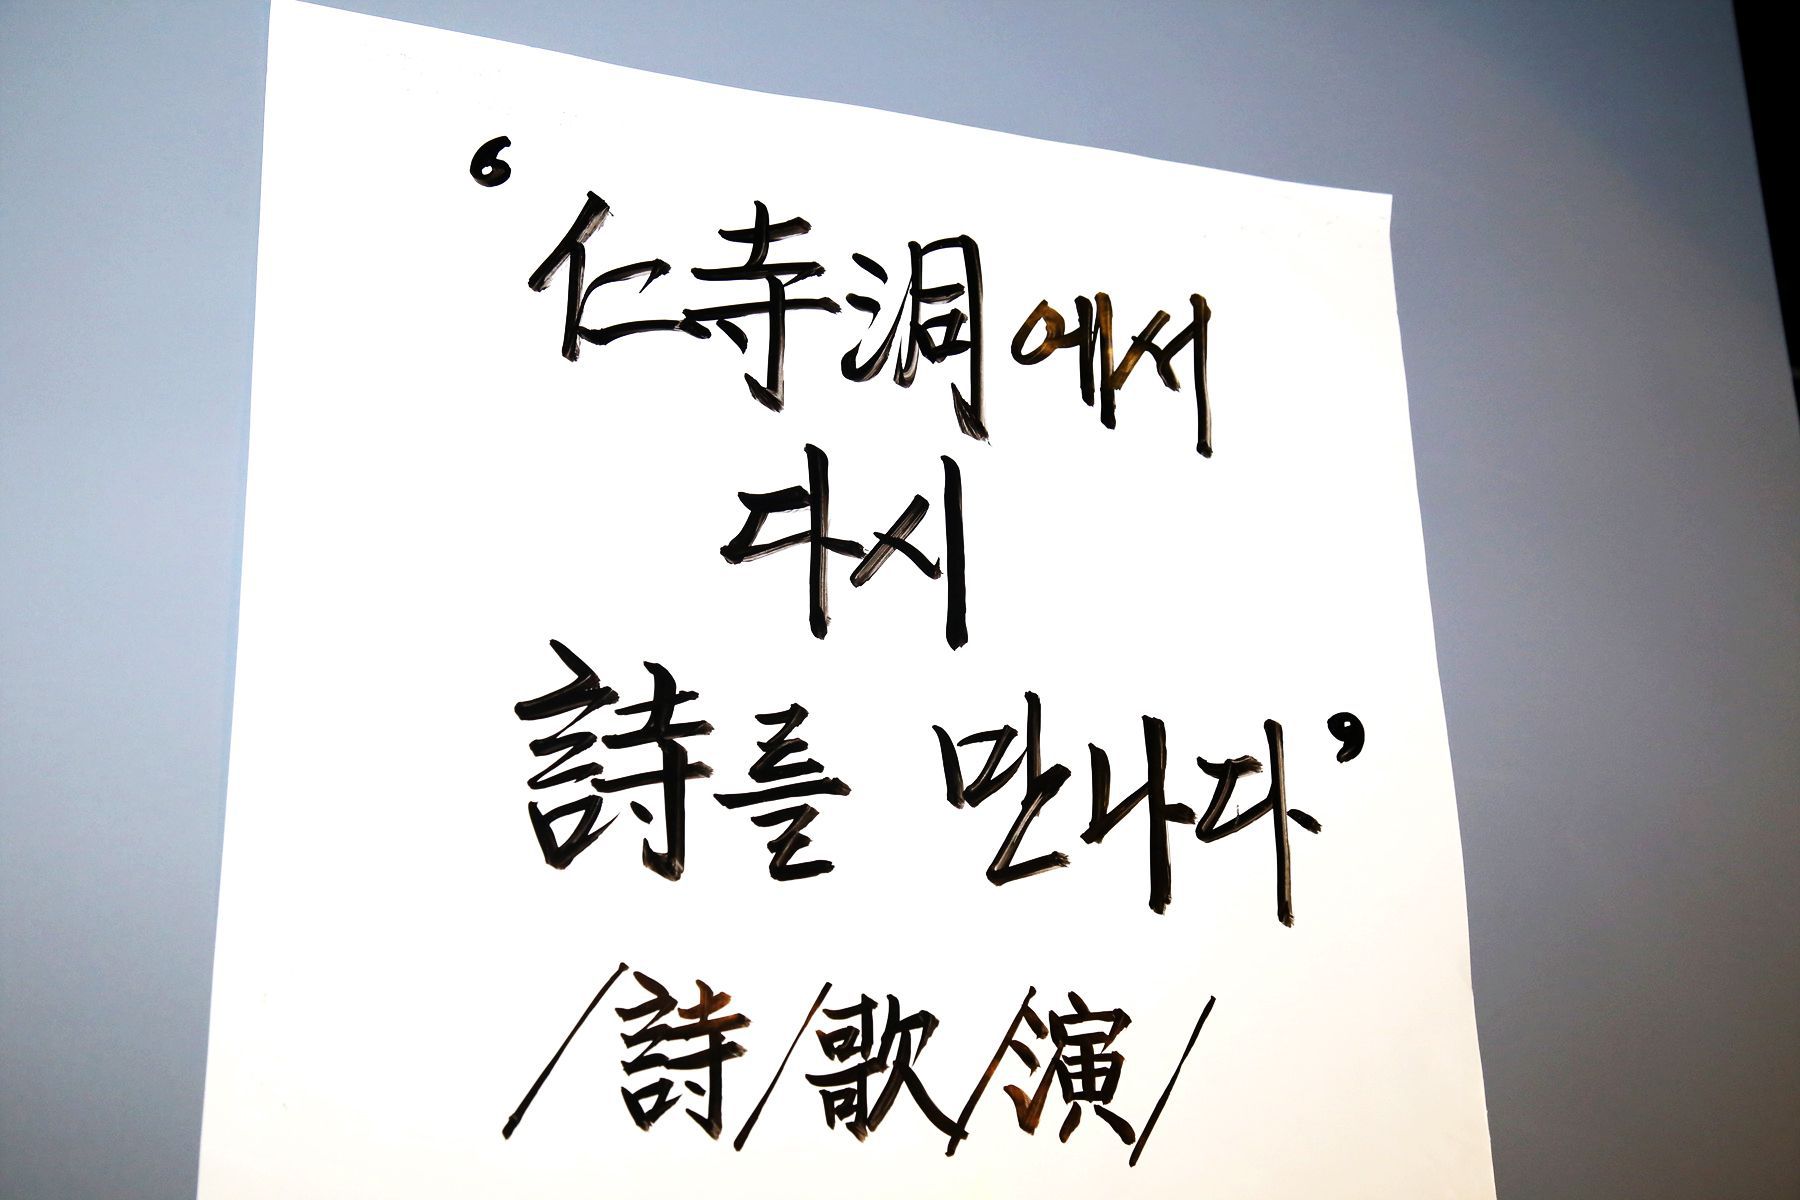 ‘仁寺洞에서
다시
詩를 만나다’
/詩/歌/演/